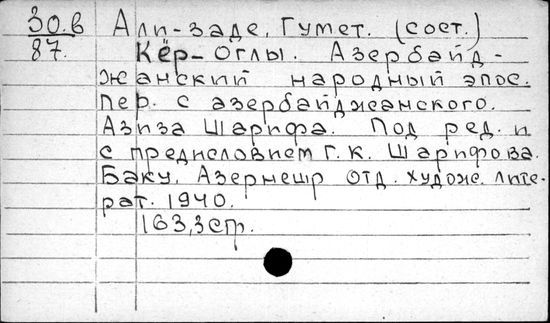 30.в Али-заде, Гумет. (сост.)
87. Кёр-оглы. Азербайд-
жанский народный эпос.
Пер. с азербайджанского.
Азиза Шарифа. Под ред. и
с предисловием Г.К. Шарифова.
Баку, Азернешр отд. худож. лите-
рат. 1940.
163,3стр.